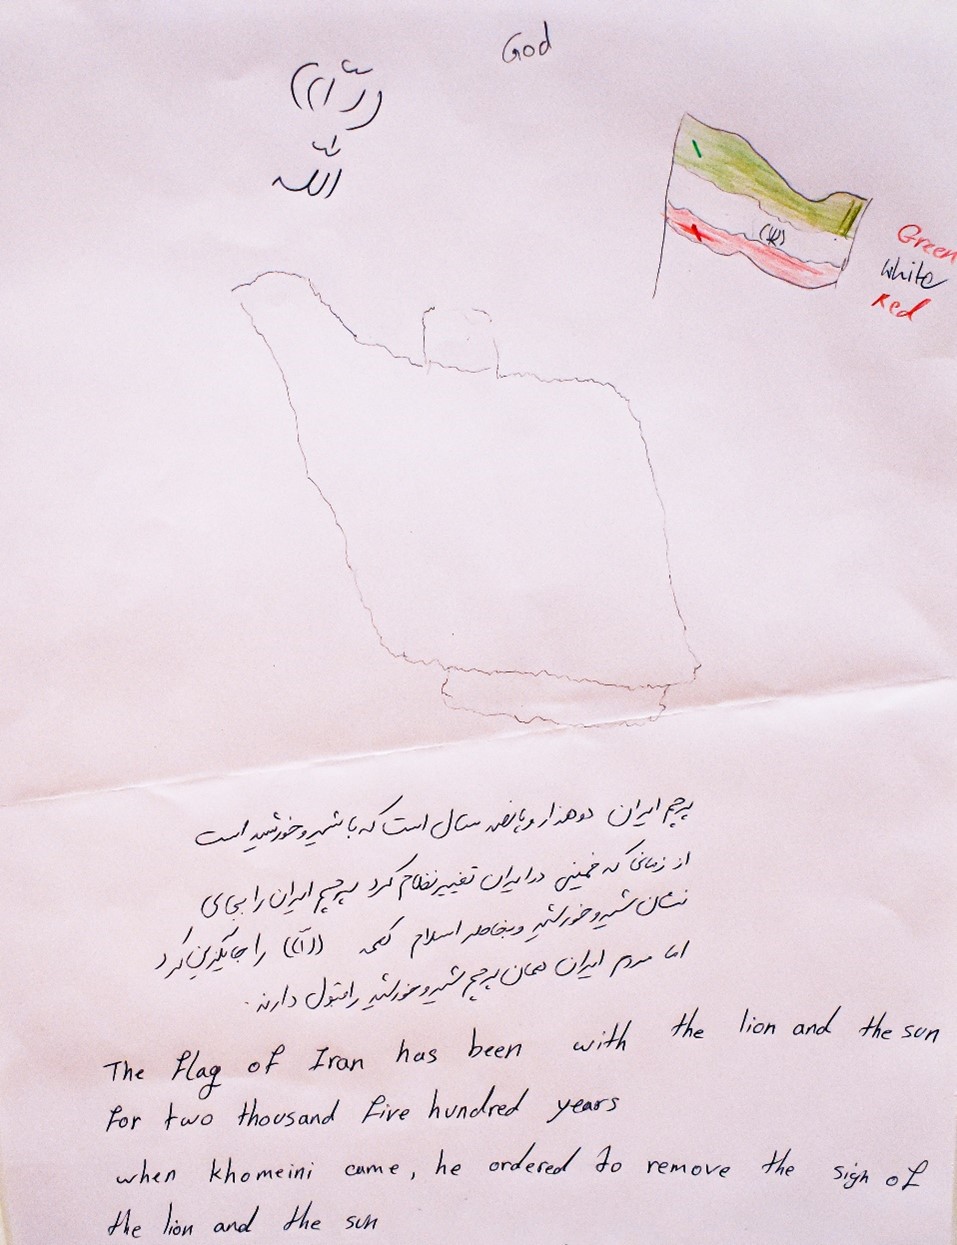 God
الله
Green
White
Red
پرچم ایران دوهزار و پانصد سال است که با شیر و خورشید است
از زمانی که خمینی در ایران تغییر نظام کرد پرچم ایران را بجای
نشان شیر و خورشید و بخاطر اسلام را جایگزین کرد
اما مردم ایران همان پرچم شیر و خورشید را قبول دارند.
The flag of Iran has been with the lion and the sun
for two thousand five hundred years
when khomeini came, he ordered to remove the sign of
the lion and the sun